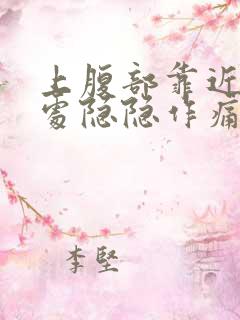 上腹部靠近
处隐隐作痛
李坚